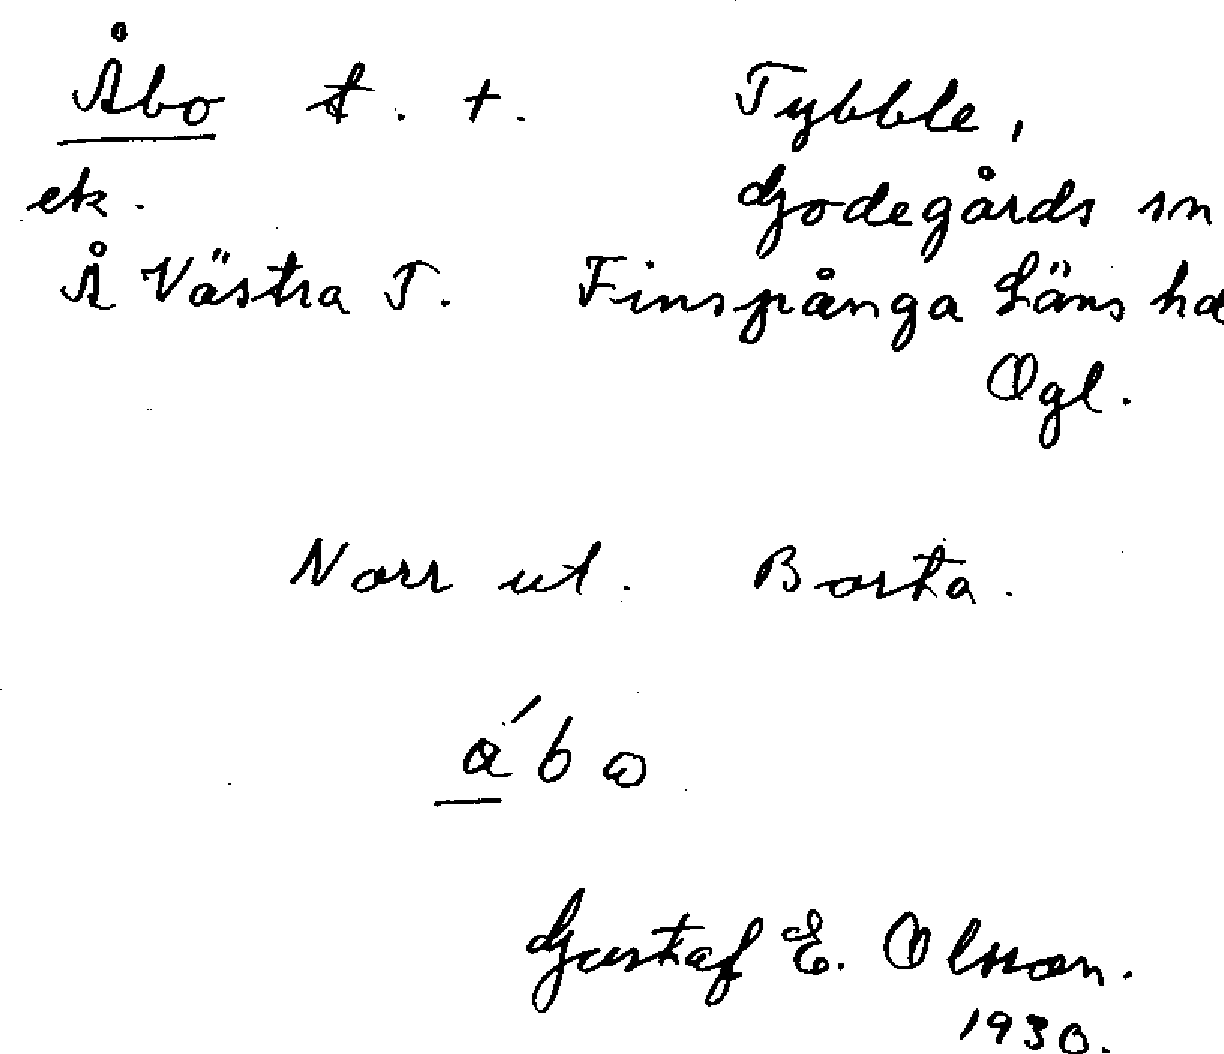 Åbo t. +. Tybble,
ek. Godegårds sn
Å Västra T. Finspånga Läns hd
Ogl.
Norr ut. Borta.
åbo
Gustaf E. Olsson.
1930.